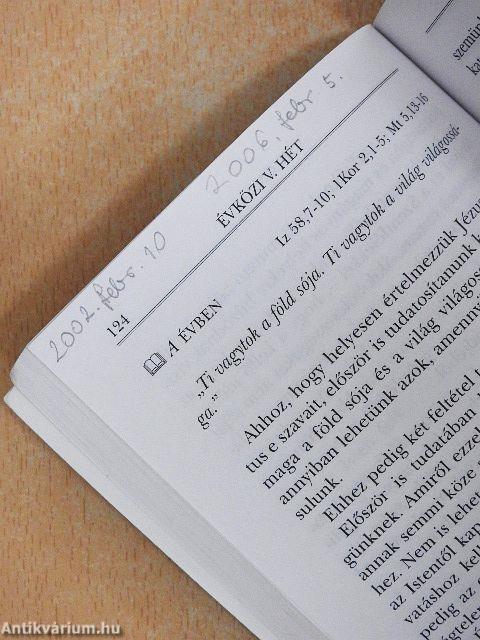 2006, febr. 5.
2002. febr. 10
124
ÉVKÖZI V. HÉT
A ÉVBEN
Iz 58,7-10; 1Kor 2,1-5; Mt 5,13-16
„Ti vagytok a föld sója. Ti vagytok a világ világossá-
ga."
Ahhoz, hogy helyesen értelmezzük Jézu
tus e szavait, először is tudatosítanunk k
maga a föld sója és a világ világos
annyiban lehetünk azok, amenny
sulunk.
Ehhez pedig két feltétel
Először is tudatában
günknek. Amiről ezzel
annak semmi köze
hez. Nem is lehe
az Istentől kap
vatáshoz kell
pedig az
gtelen
szemün
kat
Antikvárium.hu